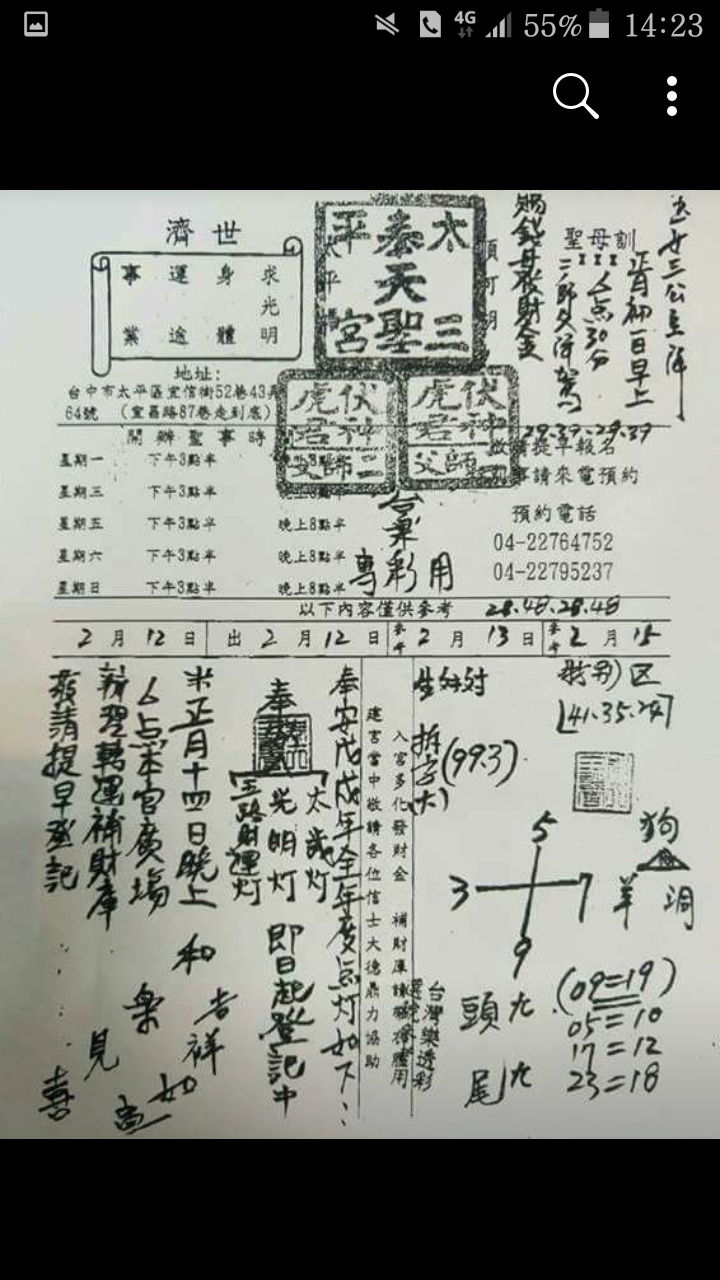 4G
55%
14:23
濟世
求身運事
光
明體途業
太平
泰天
三聖宮
地址:
台中市太平區宜信街52巷43弄
64號 (宜昌路87巷走到底)
開辦聖事時
星期一 下午3點半
星期三 下午3點半
星期五 下午3點半 晚上8點半
星期六 下午3點半 晚上8點半
星期日 下午3點半 晚上8點半
伏虎神君
二師父
伏虎神君
師父
聖母訓
正月初一早上
點30分
29.39-29.39
請提早報名
事請來電預約
預約電話
04-22764752
04-22795237
專彩用
以下內容僅供參考
28.48.28.48
2月12日
出2月12日
參考2月13日
參考2月15
特別区
41.35.24
(99.3)
5
3
7
9
狗
羊
洞
(09=19)
05=10
17=12
23=18
頭九
尾九
台灣樂透彩
入宮多化發財金
補財庫
建宮當中敬請各位信士大德鼎力協助
奉安戊戌年全年度点灯如下:
太歲灯
光明灯
五路財運灯
即日起登記中
米正月十四日晚上
6点本宮廣場
辦理轉運補財庫
敬請提早登記
和
吉祥
如
樂
見
喜